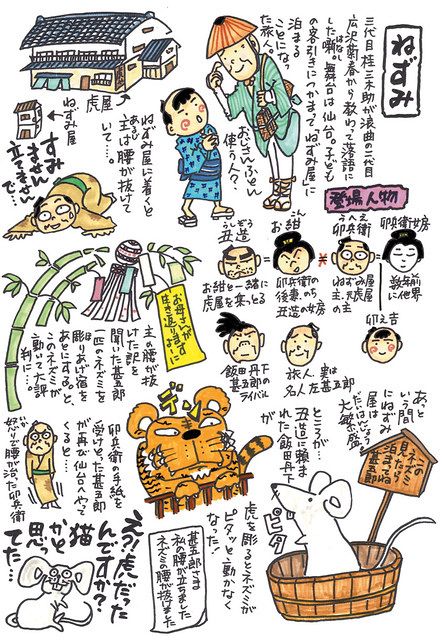 ねずみ
三代目 桂三木助が浪曲の二代目
広沢菊春から教わって落語に
した噺。舞台は仙台。子ども
の客引きにつかまって「ねずみ屋」に
泊まる
ことになっ
た旅人。
おじさんふとん
使う人?
虎屋
ねずみ屋
ねずみ屋に着くと
主(あるじ)は腰が抜けて
いて…
すみ
ません
立てません
で…
登場人物
卯兵衛女房
数年前
に他界
卯兵衛(うへえ)
ねずみ屋
主、元虎屋
の主
お紺(こん)
卯兵衛の
後妻、のち
丑造の女房
丑造(うしぞう)
お紺と一緒に
虎屋を乗っとる
卯之吉
旅人、実は
名人左甚五郎
飯田丹下
甚五郎の
ライバル
お母さんが
生き返りますように
主の腰が抜
けた訳を
聞いた甚五郎
一匹のネズミを
彫りあげ宿を
あとにすると、
このネズミが
動いて大評
判に…
あっと
いう間に
ねずみ
屋は
大繁盛(だいはんじょう)。
ところが…
丑造に頼ま
れた飯田丹下
が
デン
虎を彫るとネズミが
ピタッと動かなく
なった!
ピタ
卯兵衛の手紙を
受けとった甚五郎
が再び仙台へやって
くると…
怒りで腰が治った卯兵衛
甚五郎さま
私の腰が立ちました
ネズミの腰が抜けました
え?虎だった
んですか?
猫
かと
思っ
てた…